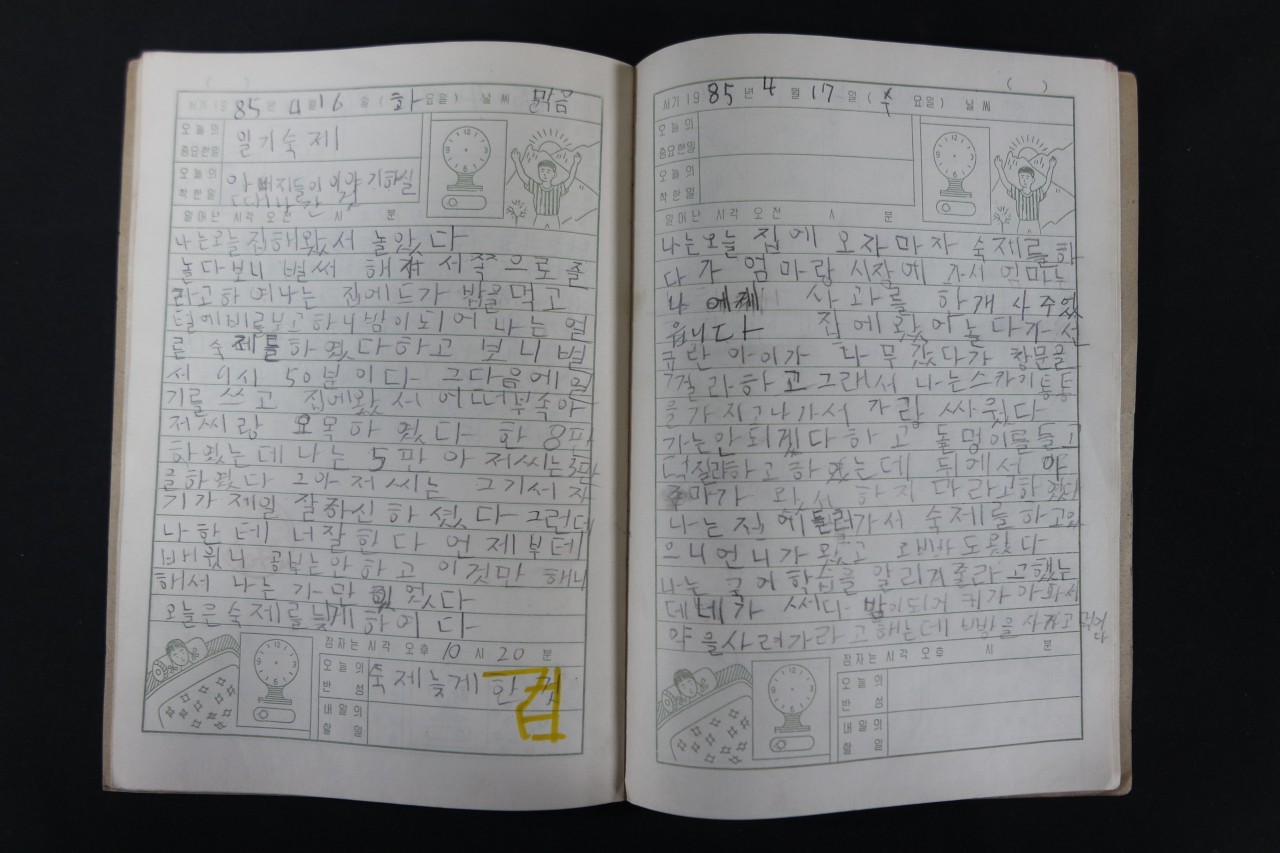 ( )
서기 19 85 년 4 월 16 일 (화 요일) 날씨 맑음
오늘의 중요한일 일기숙제
오늘의 착한일 아버지들이 이야기하실
때 나간 것
일어난 시각 오전 시 분
나는오늘 집해왔서 놀았다
놀다보니 벌써 해가 서쪽으로 줄
라고하여나는 집에드가 밥을먹고
털에비를보고하니밤이되어 나는 얼
른 숙제를하였다하고 보니 벌
서 9시 50분이다 그다음에일
기를 쓰고 집에왔서 어떠부속아
저씨랑 요목하였다 한 8판
하였는데 나는 5판 아저씨는3판
을하였다 그아저씨는 그기서 자
기가 제일 잘하신하셨다 그런데
나한테 너잘한다 언제부테
배웠니 공부는안하고 이것만 해니
해서 나는 가만 있었다
오늘은숙제를늦게하여다
잠자는 시각 오후 10 시 20 분
오늘의 반성 숙제늦게 한 것
검
내일의 할일
( )
서기 19 85 년 4 월 17 일 (수 요일) 날씨
오늘의 중요한일
오늘의 착한일
일어난 시각 오전 시 분
나는오늘 집에 오자마자 숙제를하
다가 엄마랑 시장에 가서 엄마는
나에게 사과를 하개 사주었
읍니다 집에왔어놀다가 선
규란 아이가 나무갔다가 창문을
껄라하고그래서 나는스카기통통
을가지고나가서 가랑 싸웠다
가는안되겠다하고 돌멩이를들고
떤질라하고하였는데 뒤에서 아
주마가 왔서 하지마라고하였다
나는전에들러가서 숙제를하고있
으니언니가왔고 오빠도왔다
나는 국어학습을 알리켜줄라고했는
데네가 써다 밤이되어 커가아파서
약을사러가라고해는데 빵을사가고 먹어
다
잠자는 시각 오후 시 분
오늘의 반성
내일의 할일